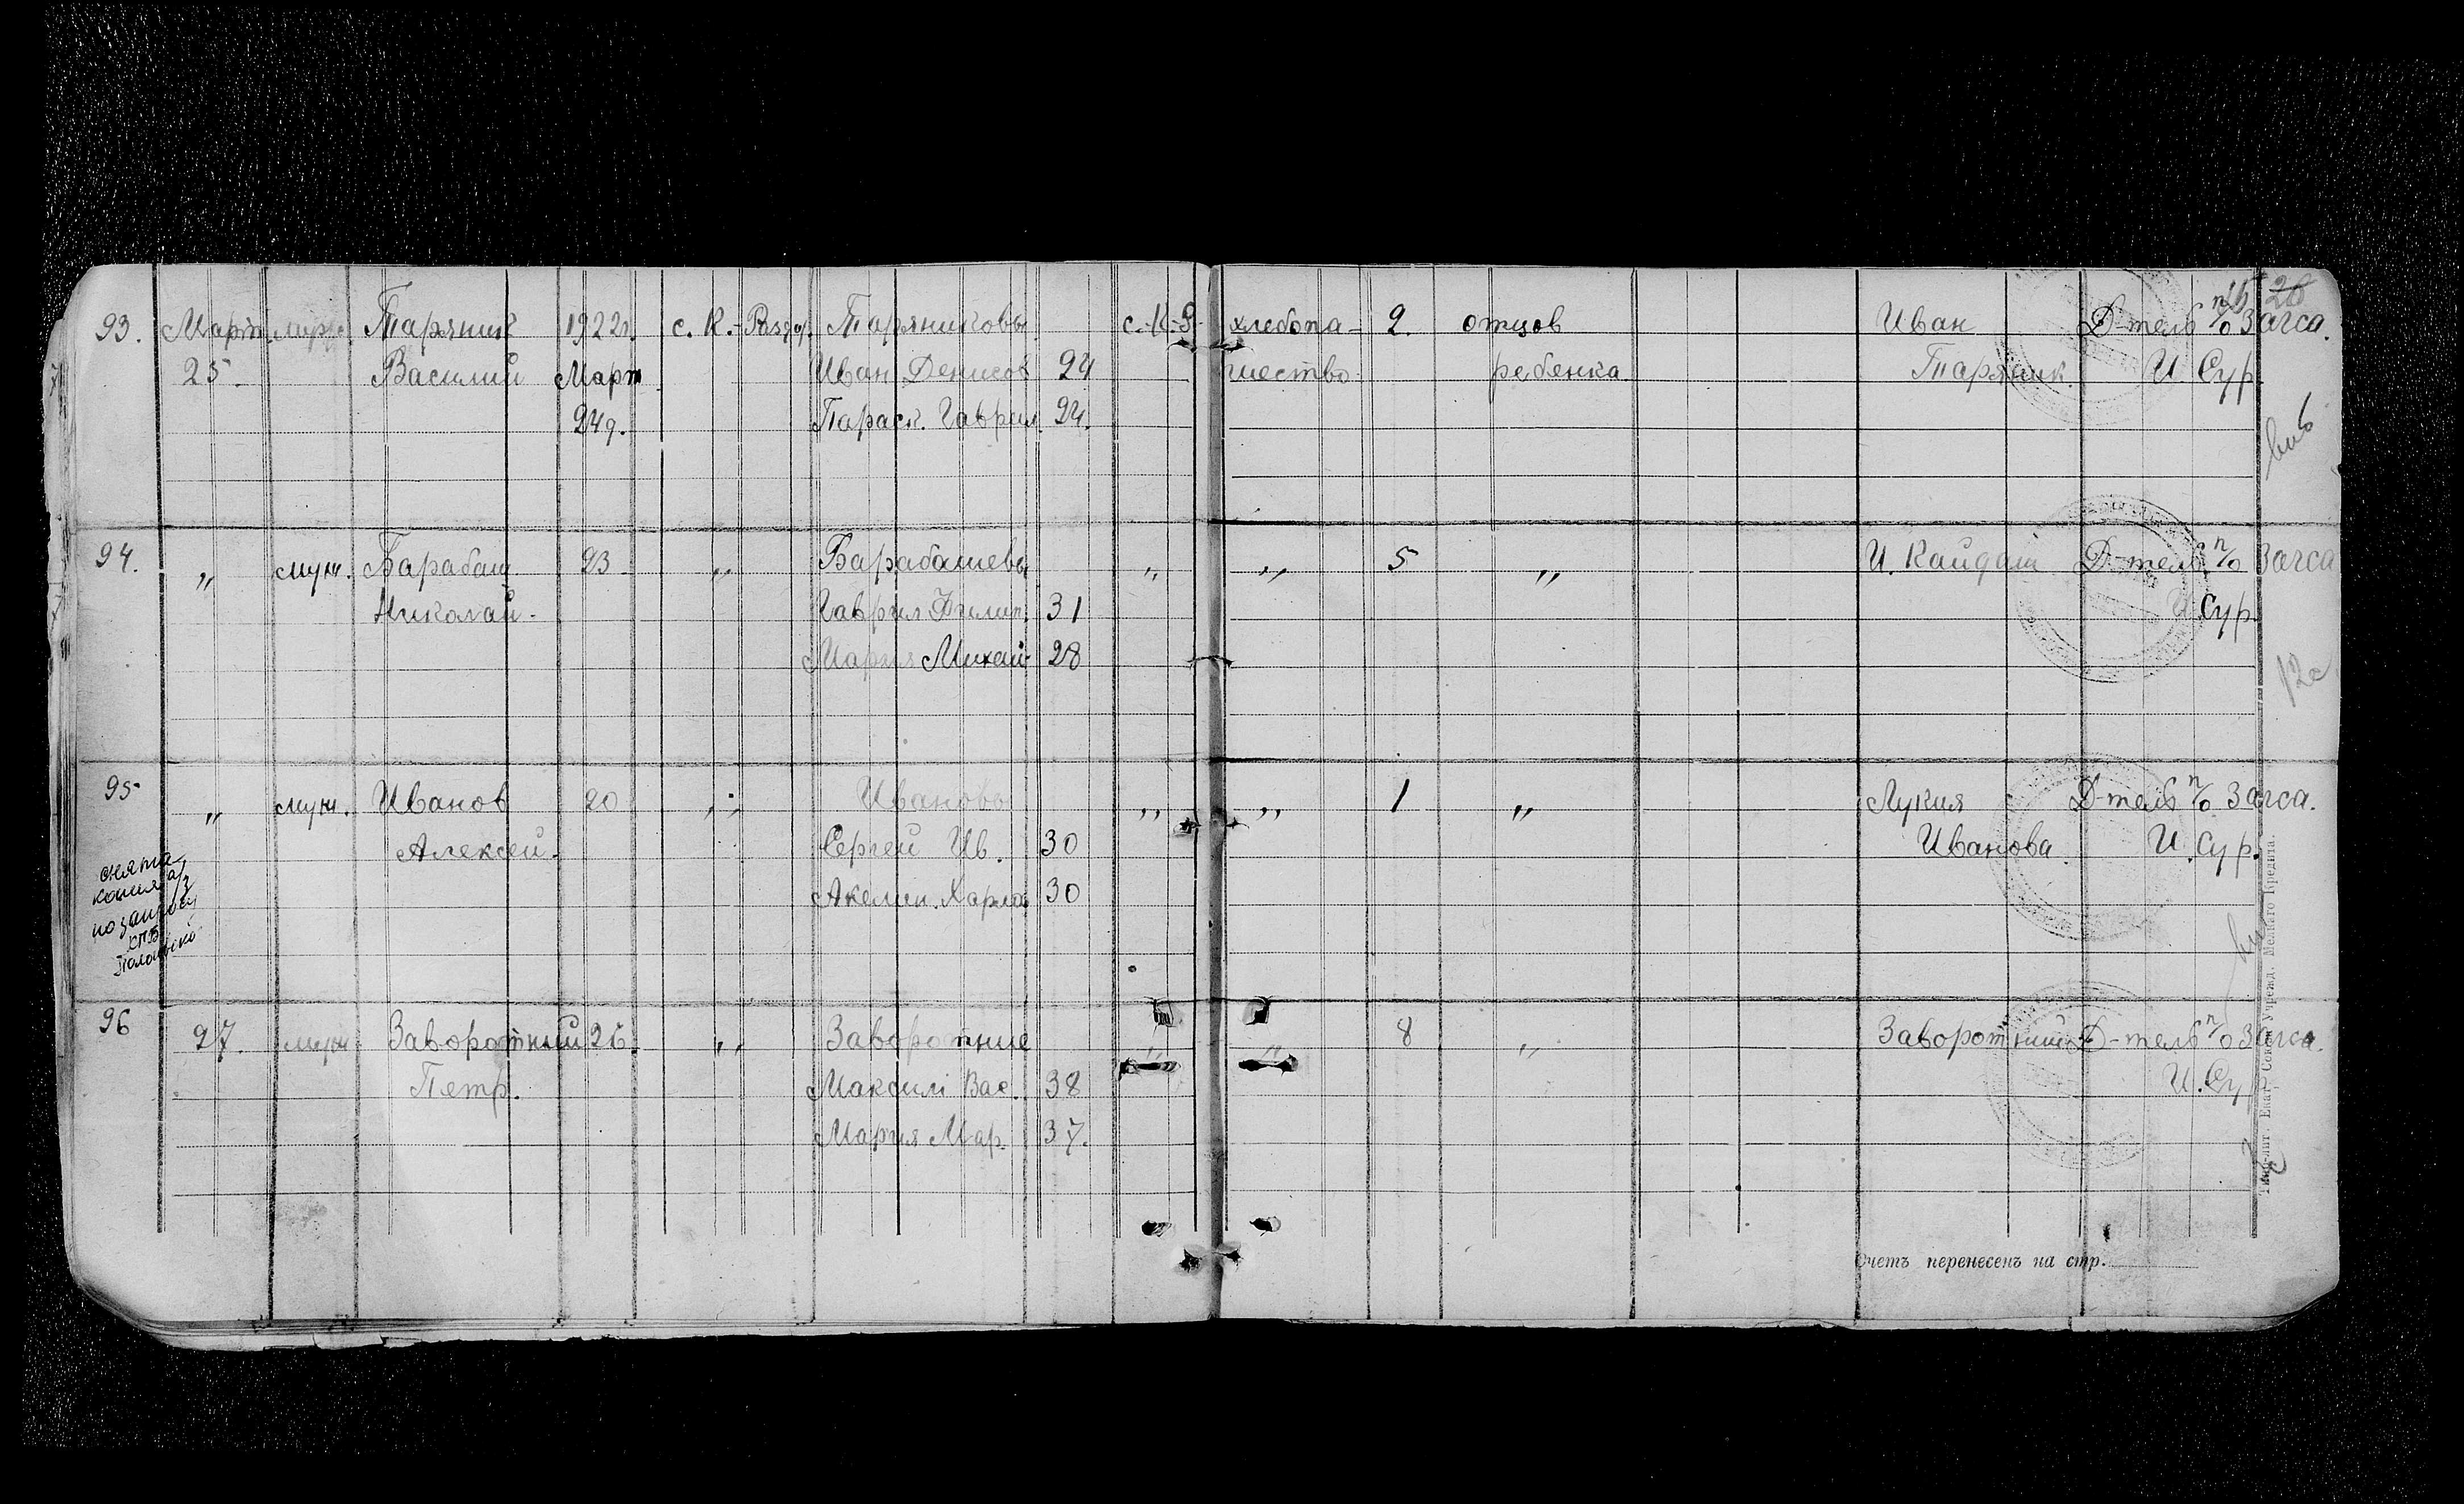 93. Март муж. Таряник 1922г. с. К.-Разд. Таряниковы с.-К.-Р. хлебопа- 2. отцов Иван Д-тель п/о Загса.
25. Василий Март Иван Денисов 24 шество ребенка Таряник. И. Сур.
24д. Параск. Гаврил. 24.
94. " муж. Барабаш 23 " Барабашевы " " 5 " И. Кайдаш Д-тель п/о Загса
Николай. Гаврил Филип. 31 И. Сур.
Мария Михай- 28
95 " муж. Иванов 20 " Ивановы " " 1 " Лукия Д-тель п/о Загса.
Алексей. Сергей Ив. 30 Иванова. И. Сур.
Акелин. Харла 30
снята
копия
по запросу
96 27. муж Заворотний 26. " Заворотние " " 8 " Заворотний Д-тель п/о Загса.
Петр. Максим Вас. 38 И. Сур
Мария Мар. 37.
Счетъ перенесенъ на стр.
Типо-лит. Екат. Союза Учрежд. Мелкаго Кредита.